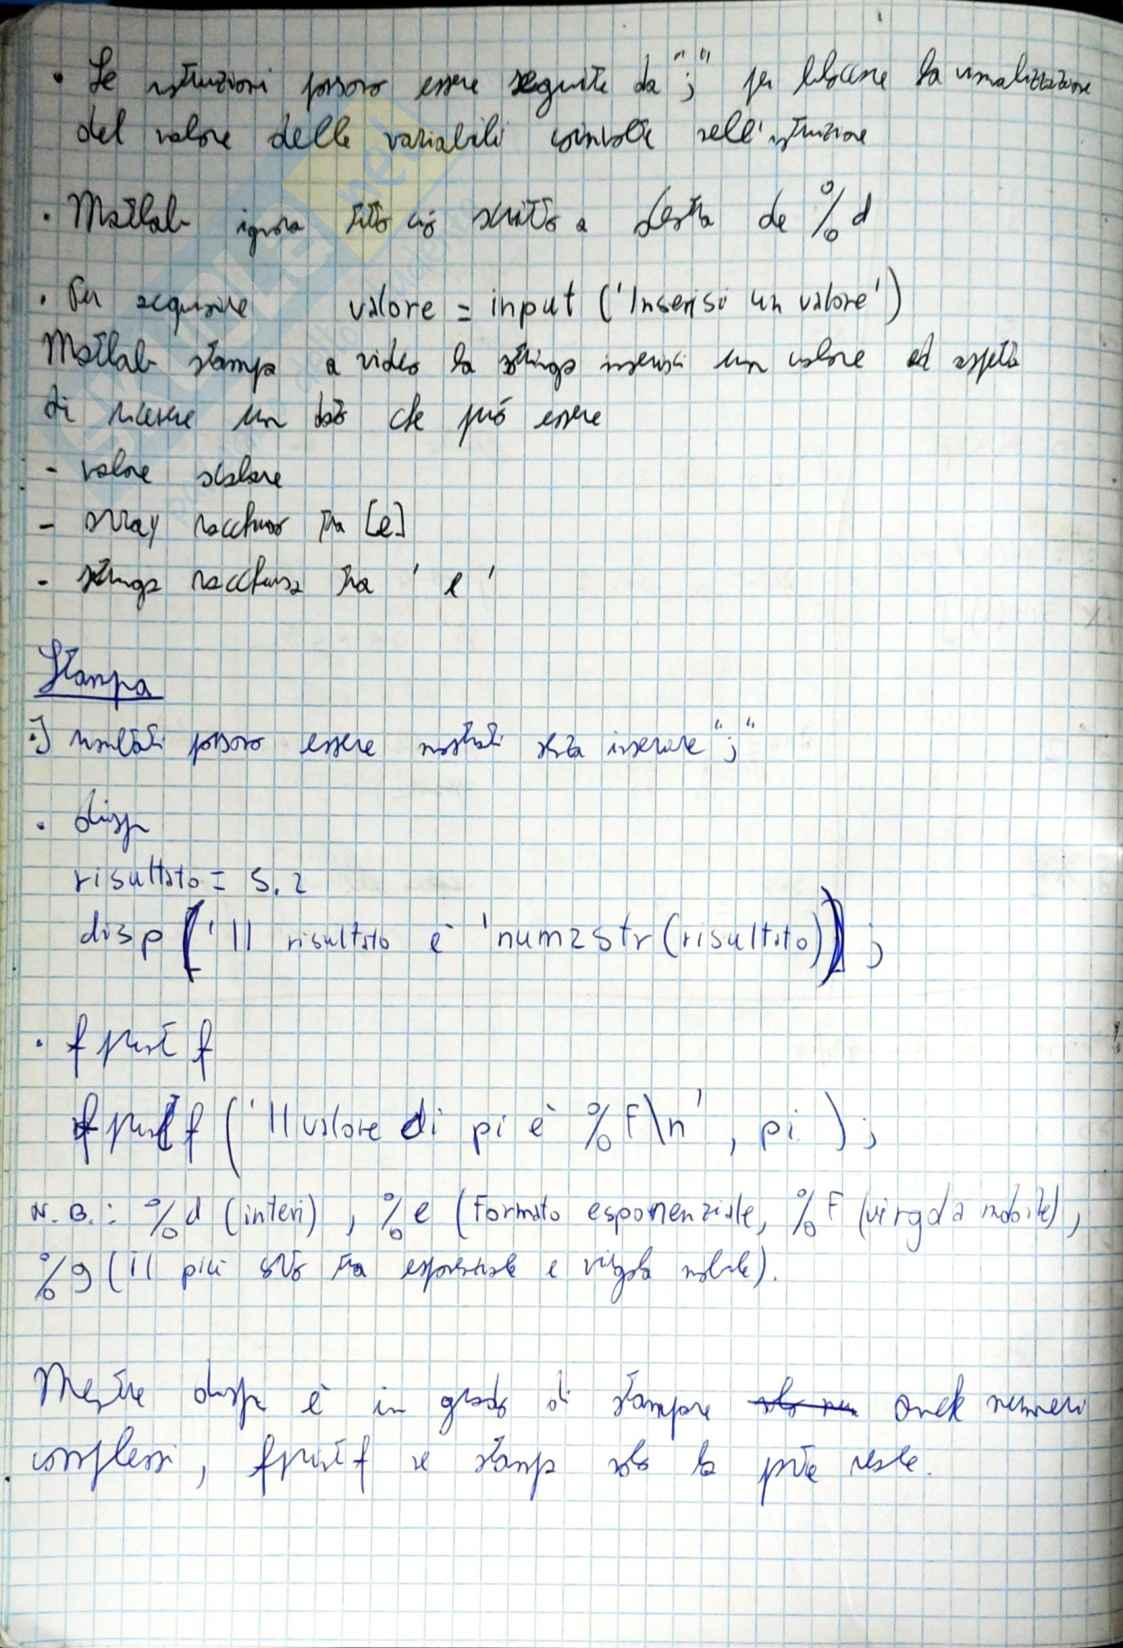 • Le istruzioni possono essere seguite da ";" per bloccare la visualizzazione
del valore delle variabili coinvolte nell'istruzione
• Matlab ignora tutto ciò scritto a destra de %d
• Per acquisire valore = input ('Inserisci un valore')
Matlab stampa a video la stringa inserisci un valore ed aspetta
di ricevere un dato che può essere
- valore scalare
- array racchiuso tra [e]
- stringa racchiusa tra ' e '
Stampa
• I risultati possono essere mostrati senza inserire ";"
• disp
risultato = 5.2
disp ['Il risultato è 'num2str(risultato)]);
• fprintf
fprintf ('Il valore di pi è %f\n', pi);
N.B.: %d (interi), %e (formato esponenziale, %f (virgola mobile),
%g (il più corto tra esponenziale e virgola mobile).
Mentre disp è in grado di stampare anche numeri
complessi, fprintf ne stampa solo la parte reale.